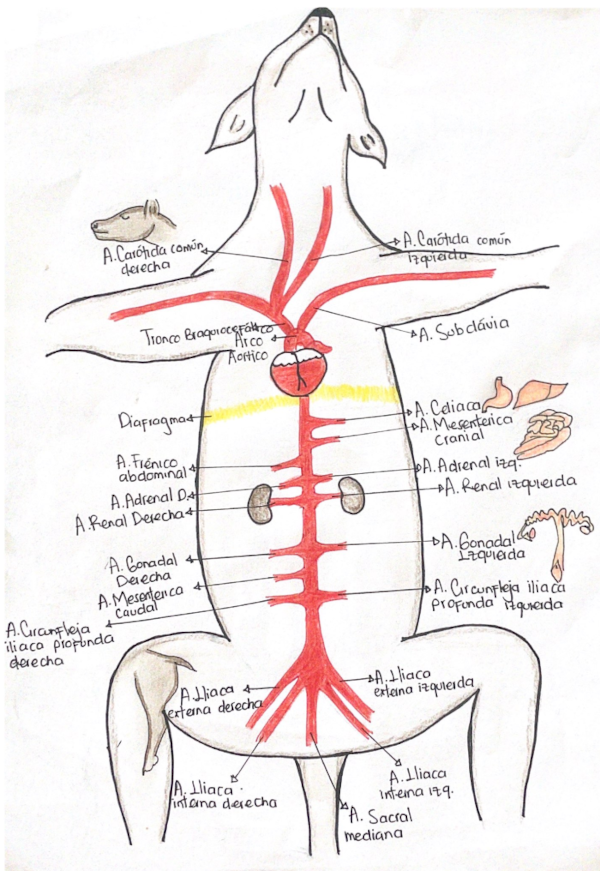 A. Carótida común
derecha
A. Carótida común
izquierda
Tronco Braquiocefálico
Arco
Aórtico
A. Subclávia
Diafragma
A. Celiaca
A. Mesenterica
cranial
A. Frénico
abdominal
A. Adrenal izq.
A. Adrenal D.
A. Renal izquierda
A. Renal Derecha
A. Gonadal
Izquierda
A. Gonadal
Derecha
A. Mesenterica
caudal
A. Circunfleja iliaca
profunda izquierda
A. Circunfleja
iliaca profunda
derecha
A. Iliaca
externa derecha
A. Iliaca
externa izquierda
A. Iliaca
interna derecha
A. Iliaca
interna izq.
A. Sacral
mediana